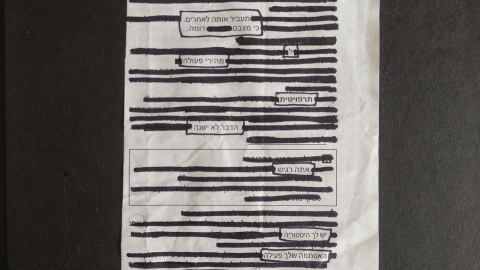 תעביר אותה לאחרים.
כי מצבם דומה.
מהירי פעולה
תרפויטית
הדבר לא ישנה
אתה רגיש
יש לך היסטוריה
האסתמה שלך פעילה